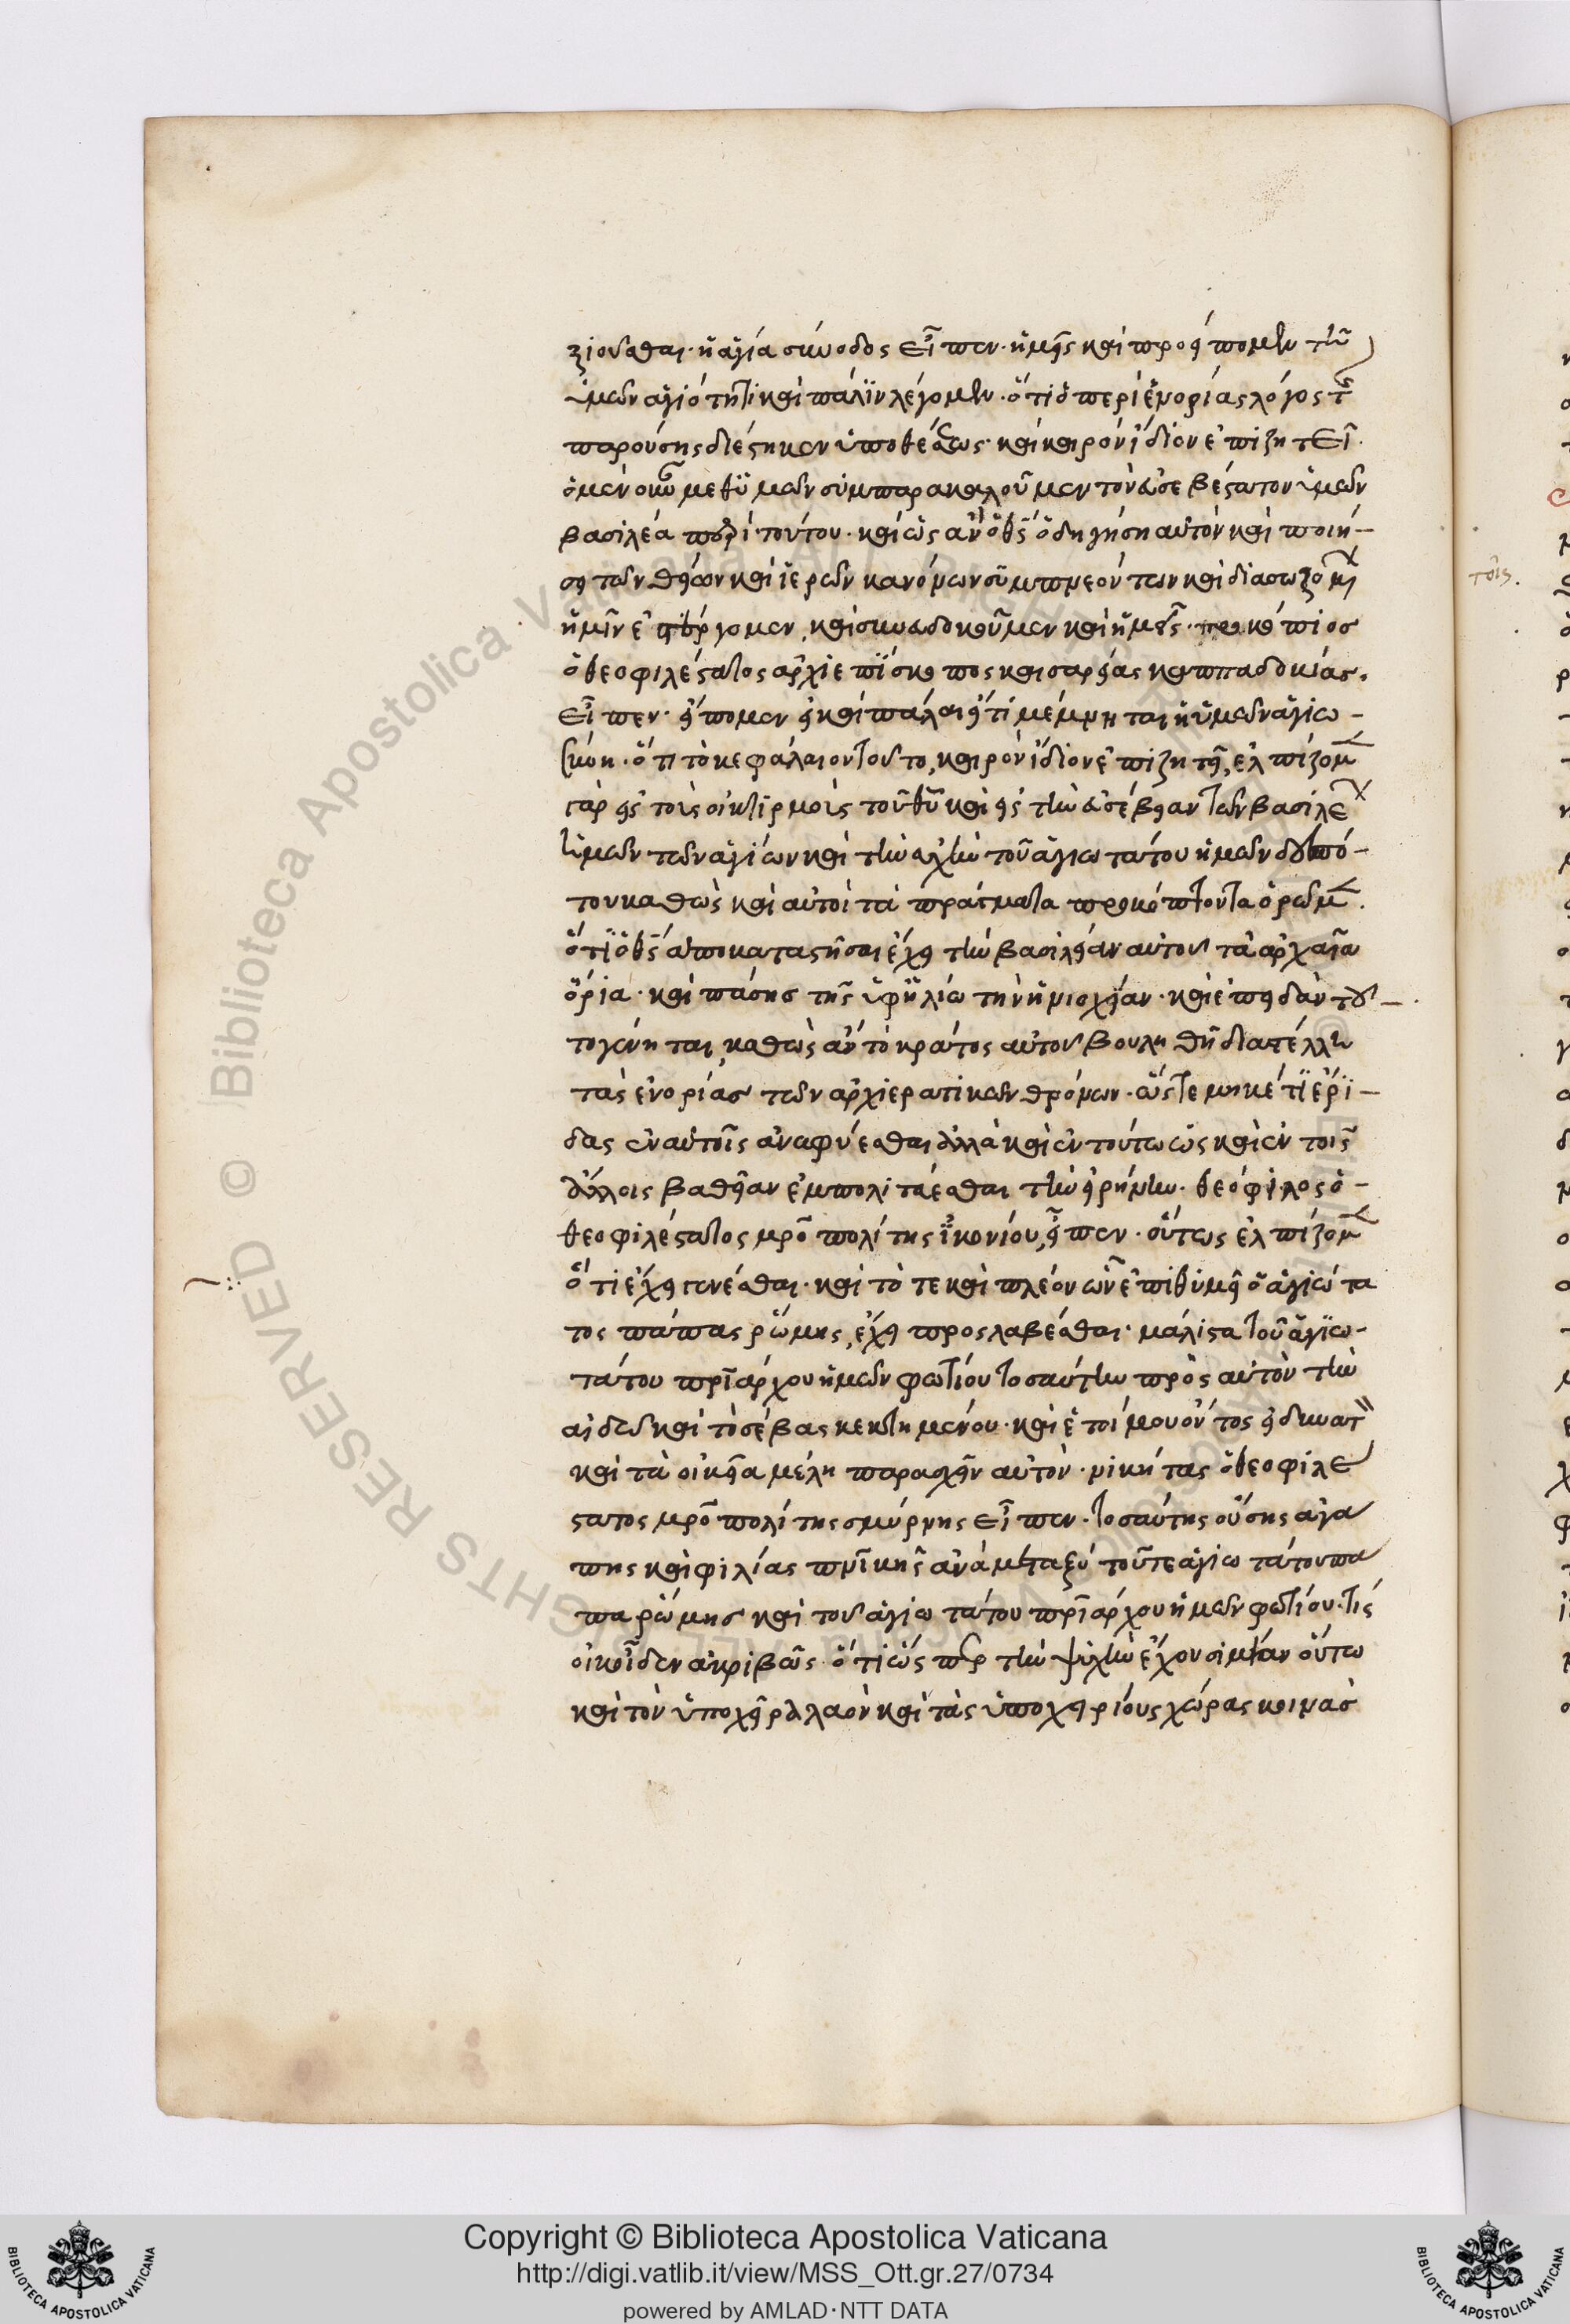 ξιοῦσθαι· ἡ ἁγία σύνοδος εἶπεν· ἡμεῖς καὶ προείπομεν τῇ
ὑμῶν ἁγιότητι καὶ πάλιν λέγομεν· ὅτι ὁ περὶ ἐνορίας λόγος τῆς
παρούσης διέστηκεν ὑποθέσεως· καὶ καιρὸν ἴδιον ἐπιζητεῖ·
ὅμεν οὖν μεθ' ὑμῶν συμπαρακαλοῦμεν τὸν εὐσεβέστατον ἡμῶν
βασιλέα περὶ τούτου· καὶ ὡς ἂν ὁ θς ὁδηγήση αὐτὸν καὶ ποιή-
ση τῶν θείων καὶ ἱερῶν κανόνων συμπνεόντων καὶ διασωζομένων
ἡμῖν στέργομεν, καὶ συνευδοκοῦμεν καὶ ἡμεῖς· προκόπιος
ὁ θεοφιλέστατος ἀρχιεπίσκοπος καισαρείας καππαδοκίας·
εἶπεν· εἴπομεν καὶ πάλαι εἴ τι μέμνηται ἡ ὑμῶν ἁγιω-
σύνη· ὅτι τὸ κεφάλαιον τοῦτο, καιρὸν ἴδιον ἐπιζητεῖ, ἐλπίζομεν
γὰρ εἰς τοὺς οἰκτιρμοὺς τοῦ θυ καὶ εἰς τὴν εὐσέβειαν τῶν βασιλέων
ἡμῶν τῶν ἁγίων καὶ τὴν εὐχὴν τοῦ ἁγιωτάτου ἡμῶν δεσπό-
του καθὼς καὶ αὐτοὶ τὰ πράγματα προκόπτοντα ὁρῶμεν·
ὅτι ὁ θς ἀποκαταστῆσαι ἔχει τὴν βασιλείαν αὐτοῦ τὰ ἀρχαῖα
ὅρια· καὶ πάσης τῆς ὑφηλίω τὴν ἡνιοχείαν· καὶ ἐπειδὰν τοῦ-
το γένηται, καθὼς ἂν τὸ κράτος αὐτοῦ βουληθῆ διαστέλλει
τὰς ἐνορίας τῶν ἀρχιερατικῶν θρόνων· ὥστε μηκέτι ἔρι-
δας ἐν αὐτοῖς ἀναφύεσθαι ἀλλὰ καὶ ἐν τούτω ὡς καὶ ἐν τοῖς
ἄλλοις βαθεῖαν ἐμπολιτεύεσθαι τὴν εἰρήνην· θεόφιλος ὁ
θεοφιλέστατος μροπολίτης ἰκονίου, εἶπεν· οὕτως ἐλπίζομεν
ὅτι ἔχει γενέσθαι· καὶ τό τε καὶ πλέον ὧν ἐπιθυμεῖ ὁ ἁγιώτα
τος πάπας ῥώμης, ἔχει προσλαβέσθαι· μάλιστα τοῦ ἁγιω-
τάτου πριάρχου ἡμῶν φωτίου τοσαύτην πρὸς αὐτὸν τὴν
αἰδῶ καὶ τὸ σέβας κεκτημένου· καὶ ἑτοίμου ὄντος εἰ δυνατὸν
καὶ τὰ οἰκεῖα μέλη παρασχεῖν αὐτόν· νικήτας ὁ θεοφιλέ
στατος μροπολίτης σμύρνης εἶπεν· τοσαύτης οὔσης ἀγά
πης καὶ φιλίας πνικῆς ἀνάμεταξύ τοῦ τε ἁγιωτάτου πά
πα ῥώμης καὶ τοῦ ἁγιωτάτου πριάρχου ἡμῶν φωτίου· τίς
οὐκ οἶδεν ἀκριβῶς ὅτι ὥσπερ τὴν ψυχὴν ἔχουσι μίαν οὕτω
καὶ τὸν ὑποχεῖρα λαὸν καὶ τὰς ὑποχειρίους χώρας κοινὰς
τοῖς.
Copyright © Biblioteca Apostolica Vaticana
http://digi.vatlib.it/view/MSS_Ott.gr.27/0734
powered by AMLAD·NTT DATA